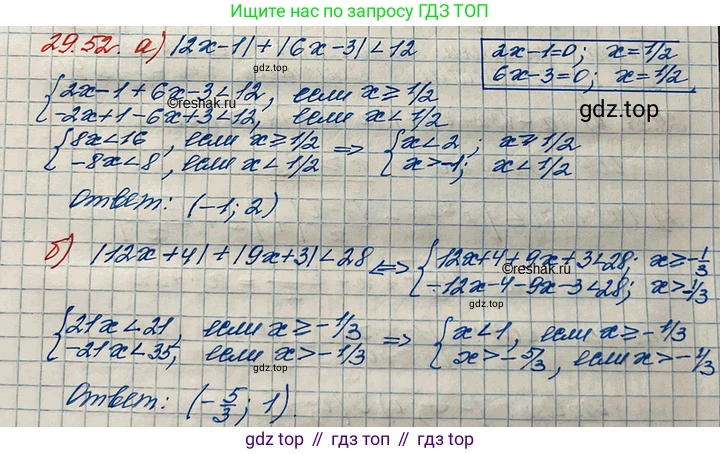 Ищите нас по запросу ГДЗ ТОП
29.52. а) |2x-1|+|6x-3|<12
2x-1=0; x=1/2
6x-3=0; x=1/2
gdz.top
gdz.top
{2x-1+6x-3<12, если x⩾1/2
-2x+1-6x+3<12, если x<1/2
©reshak.ru
{8x<16, если x⩾1/2 => {x<2; x⩾1/2
-8x<8, если x<1/2 x>-1; x<1/2
Ответ: (-1; 2)
gdz.top
б) |12x+4|+|9x+3|<28 <=> {12x+4+9x+3<28; x⩾-1/3
-12x-4-9x-3<28; x>-1/3
©reshak.ru
gdz.top
{21x<21, если x⩾-1/3 => {x<1, если x⩾-1/3
-21x<35, если x>-1/3 x>-5/3, если x>-1/3
Ответ: (-5/3; 1).
gdz.top
gdz.top // гдз.топ // gdz.top